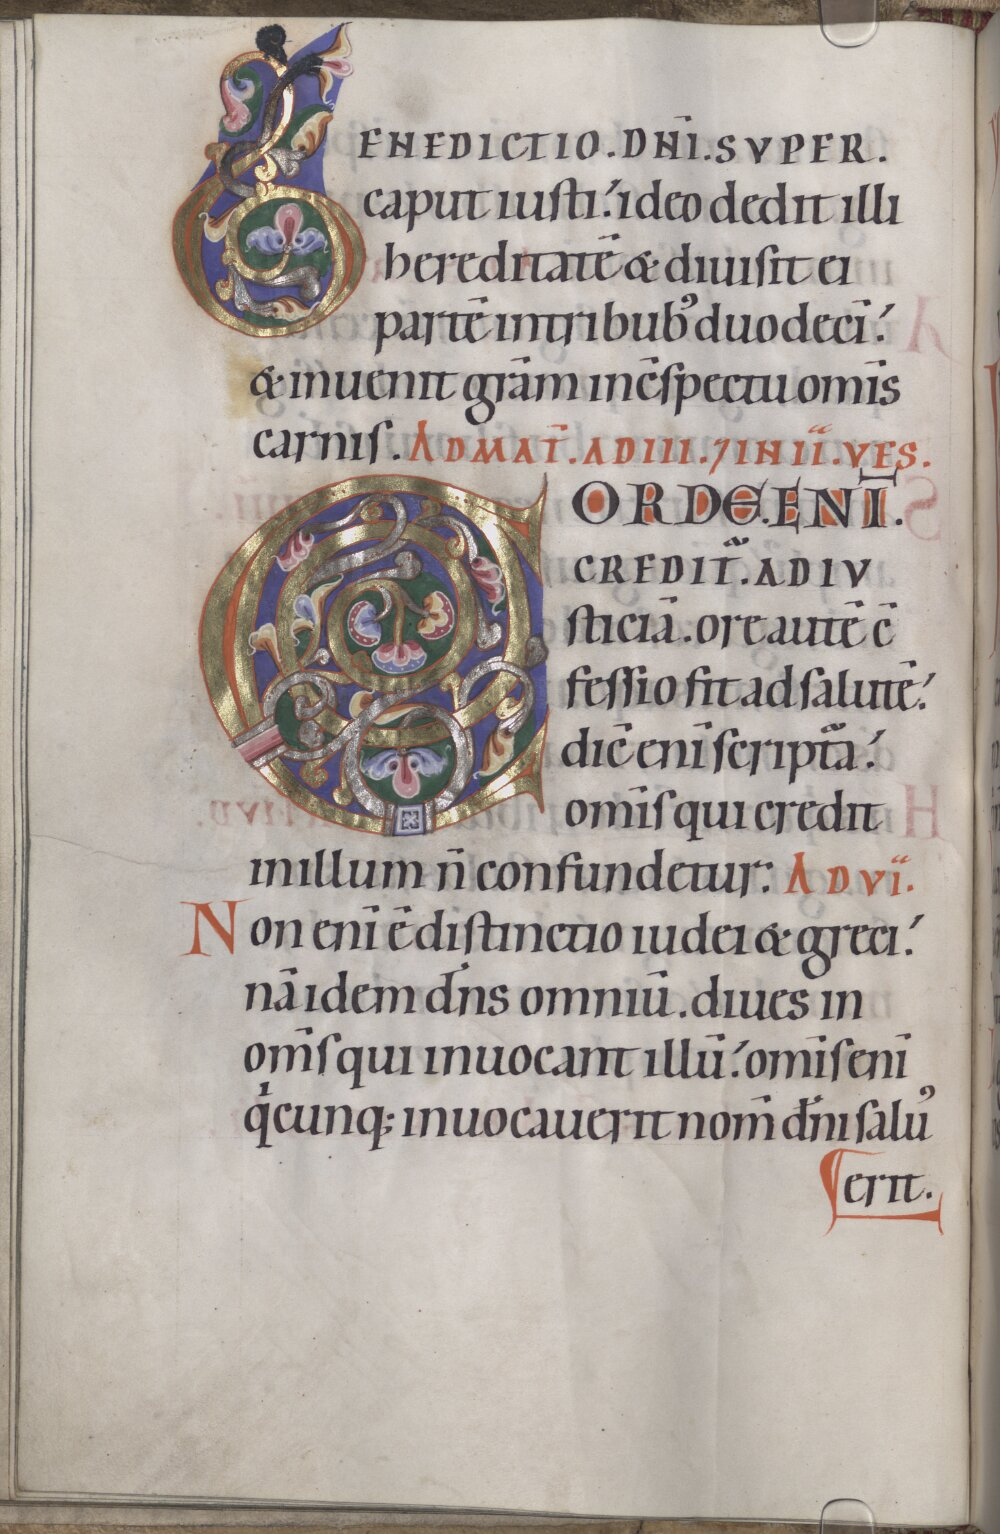 BENEDICTIO . DNĪ . SVPER .
caput iusti : ideo dedit illi
hereditatē & diuisit ei
partē in tribubꝰ duodecī :
& inuenit grām in c̄spectu omīs
carnis . AD MAT̄ . AD III . 7 IN II . VES .
CORDE . ENĪ .
CREDIT̄ . AD IV
sticiā . ore autē c̄
fessio fit ad salutē :
dic̄ enī scriptᵃ :
omīs qui credit
in illum n̄ confundetur : AD VI .
Non enī ē distinctio iudei & greci :
nā idem dn̄s omniū . diues in
om̄s qui inuocant illū : omīs enī
qͥcunq; inuocauerit nom̄ dn̄i saluꝰ
erit .